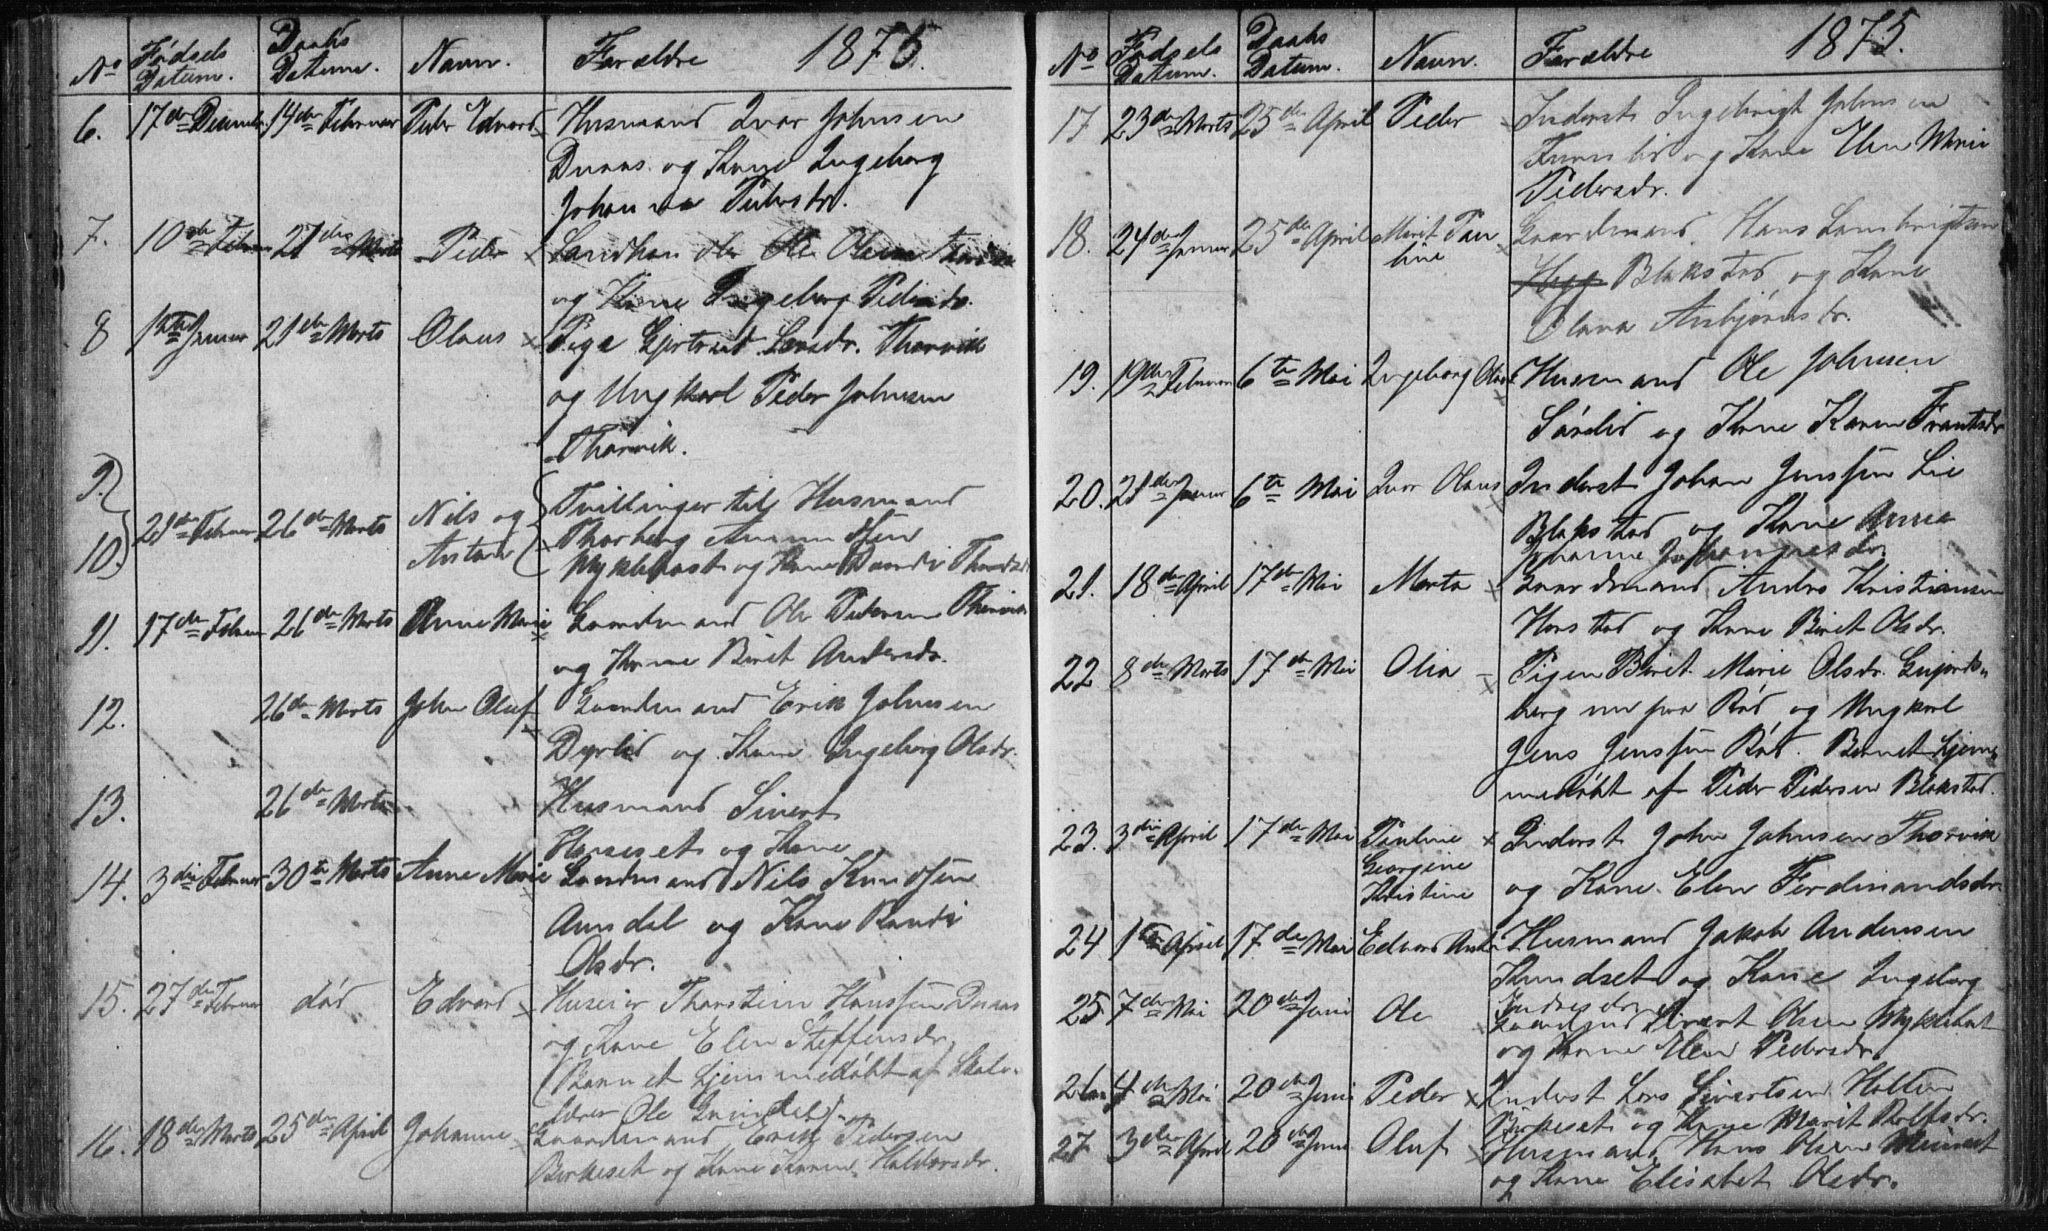 No Fødsels Datum. Daabs Datum. Navn. Forældre 1875.
6. 17de Decembr 14de Februar Peder Edvard Husmand Ivar Johnsen
Duaas og Kone Ingeborg
Johanna Pedersdr.
7. 10de Februar 21de Marts Peder Ole Olsen
og Kone Ingeborg Pedersdr.
8 1ste Januar 21de Marts Olaus Pige Gjertrud Larsdr. Thorvik
og Ungkarl Peder Johnsen
Thorvik.
9. Tvillinger til Husmand
10. 21de Februar 26de Marts Nils og Anton Thorberg Amundsen
Myklebost og Kone Randi
11. 17de Februar 26de Marts Anne Marie Gaardmand Ole Pedersen Thorvik
og Kone Beret Andersdr.
12. 26de Marts John Oluf Gaardmand Erik Johnsen
Dyrlid og Kone Ingeborg Olsdr.
13. 26de Marts Husmand Sivert
og Kone
14. 3die Februar 30te Marts Anne Marie Gaardmand Nils Knudsen
Ausdal og Kone Randi
Olsdr.
15. 27de Februar død Edvard Thorstein Hanssen Duaas
og Kone Elen Steffensdr.
Barnet hjemmedøbt af Skole-
lærer Ole
16. 18de Marts 25de April Johanne Gaardmand Erik Pedersen
Birkeset og Kone Karen Haldorsdr.
No Fødsels Datum. Daabs Datum. Navn. Forældre 1875.
17 23de Marts 25de April Peder Inderst Ingebrigt Johnsen
og Kone Elen Marie
Pedersdr.
18. 24de Januar 25de April Marit Pau
line Gaardmand Hans Lambrigtsen
Blakstad og Kone
Olava Asbjørnsdr.
19. 19de Februar 6te Mai Ingeborg Olava Husmand Ole Johnsen
Sørlid og Kone Karen Frantsdr
20. 21de Januar 6te Mai Ivar Olaus Inderst Johan Jenssen Lie
Blakstad og Kone Anne
Johanne Johannesdr.
21. 18de April 17de Mai Marta Gaardmand Anders Kristiansen
Horstad og Kone Beret Olsdr.
22 8de Marts 17de Mai Olia Pigen Beret Marie Olsdr.
berg nu paa Rød og Ungkarl
Jens Jenssen Rød. Barnet hjem-
medøbt af Peder Pedersen Blakstad.
23. 3die April 17de Mai Pauline
Georgine
Kristine Inderst John Johnsen Thorvik
og Kone Elen Ferdinandsdr.
24 1ste April 17de Mai Edvard Anton Husmand Jakob Andersen
Knudset og Kone Ingeborg
25 7de Mai 20de Juni Ole Gaardmand Sivert Olsen Myklebost
og Kone Elen Pedersdr.
26 4de Mai 20de Juni Peder Inderst Lars Sivertsen Holten
Birkeset og Kone Marit
27. 3die April 20de Juni Oluf Husmand Hans Olsen
og Kone Elisabet Olsdr.